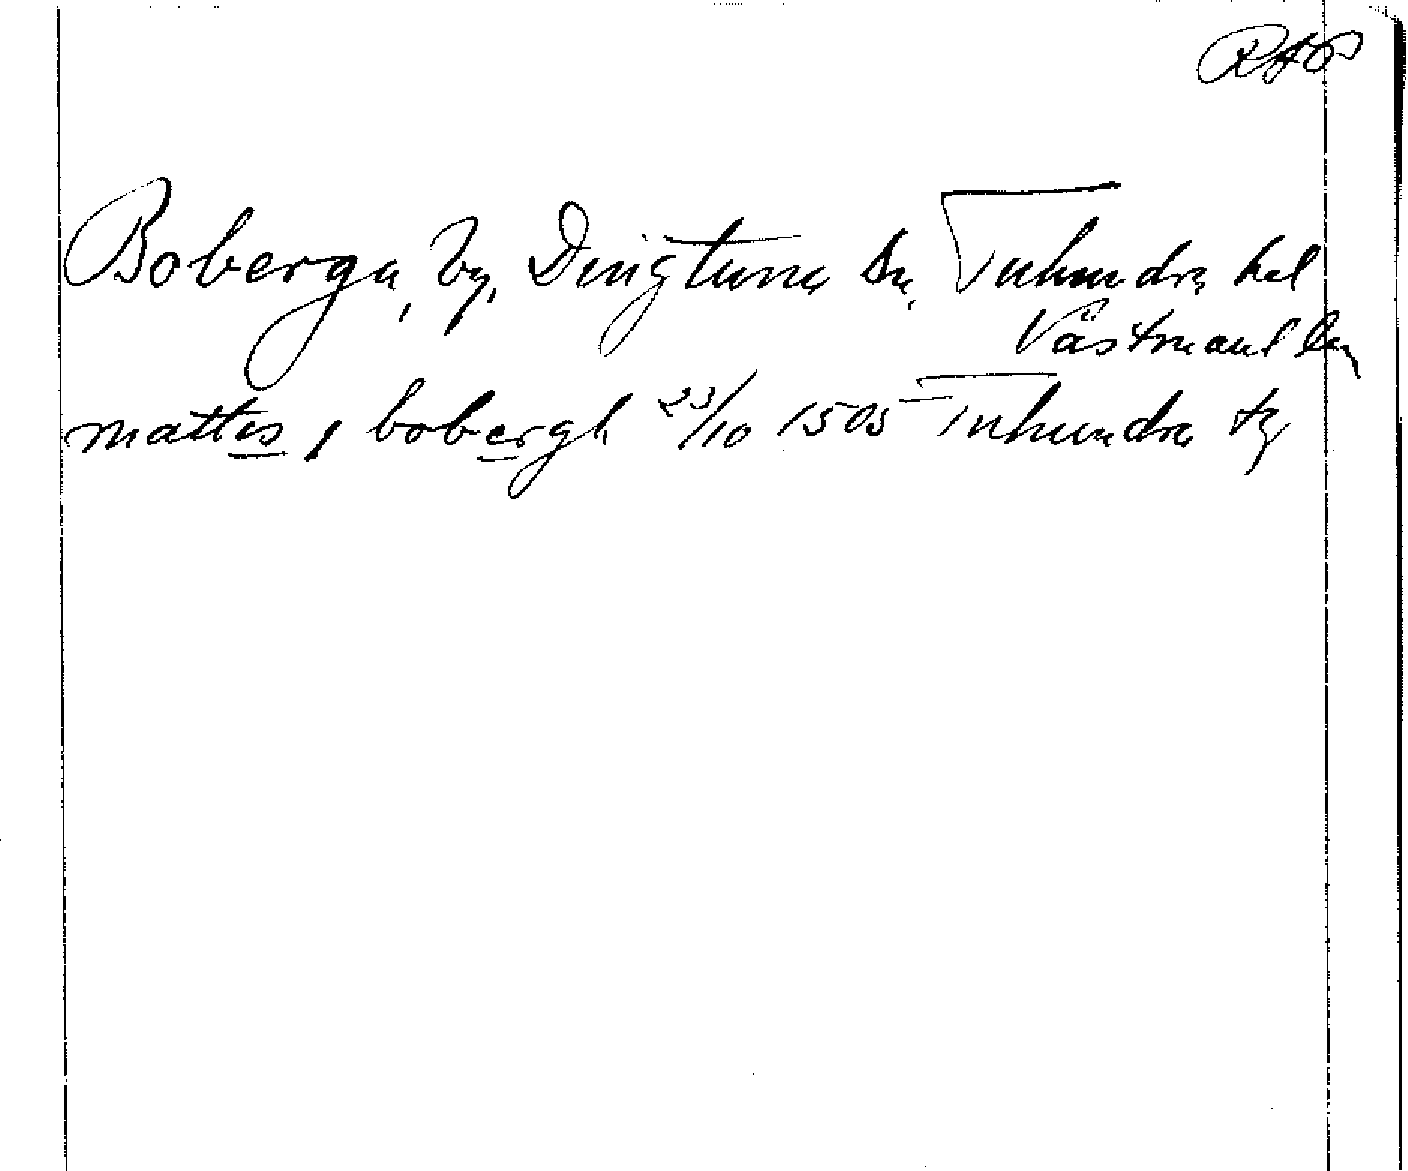 RAP
Boberga, by, Dingtuna sn, Tuhundra hd
Västmanl ln
mattis j bobergh 23/10 1505 Tuhundra tg